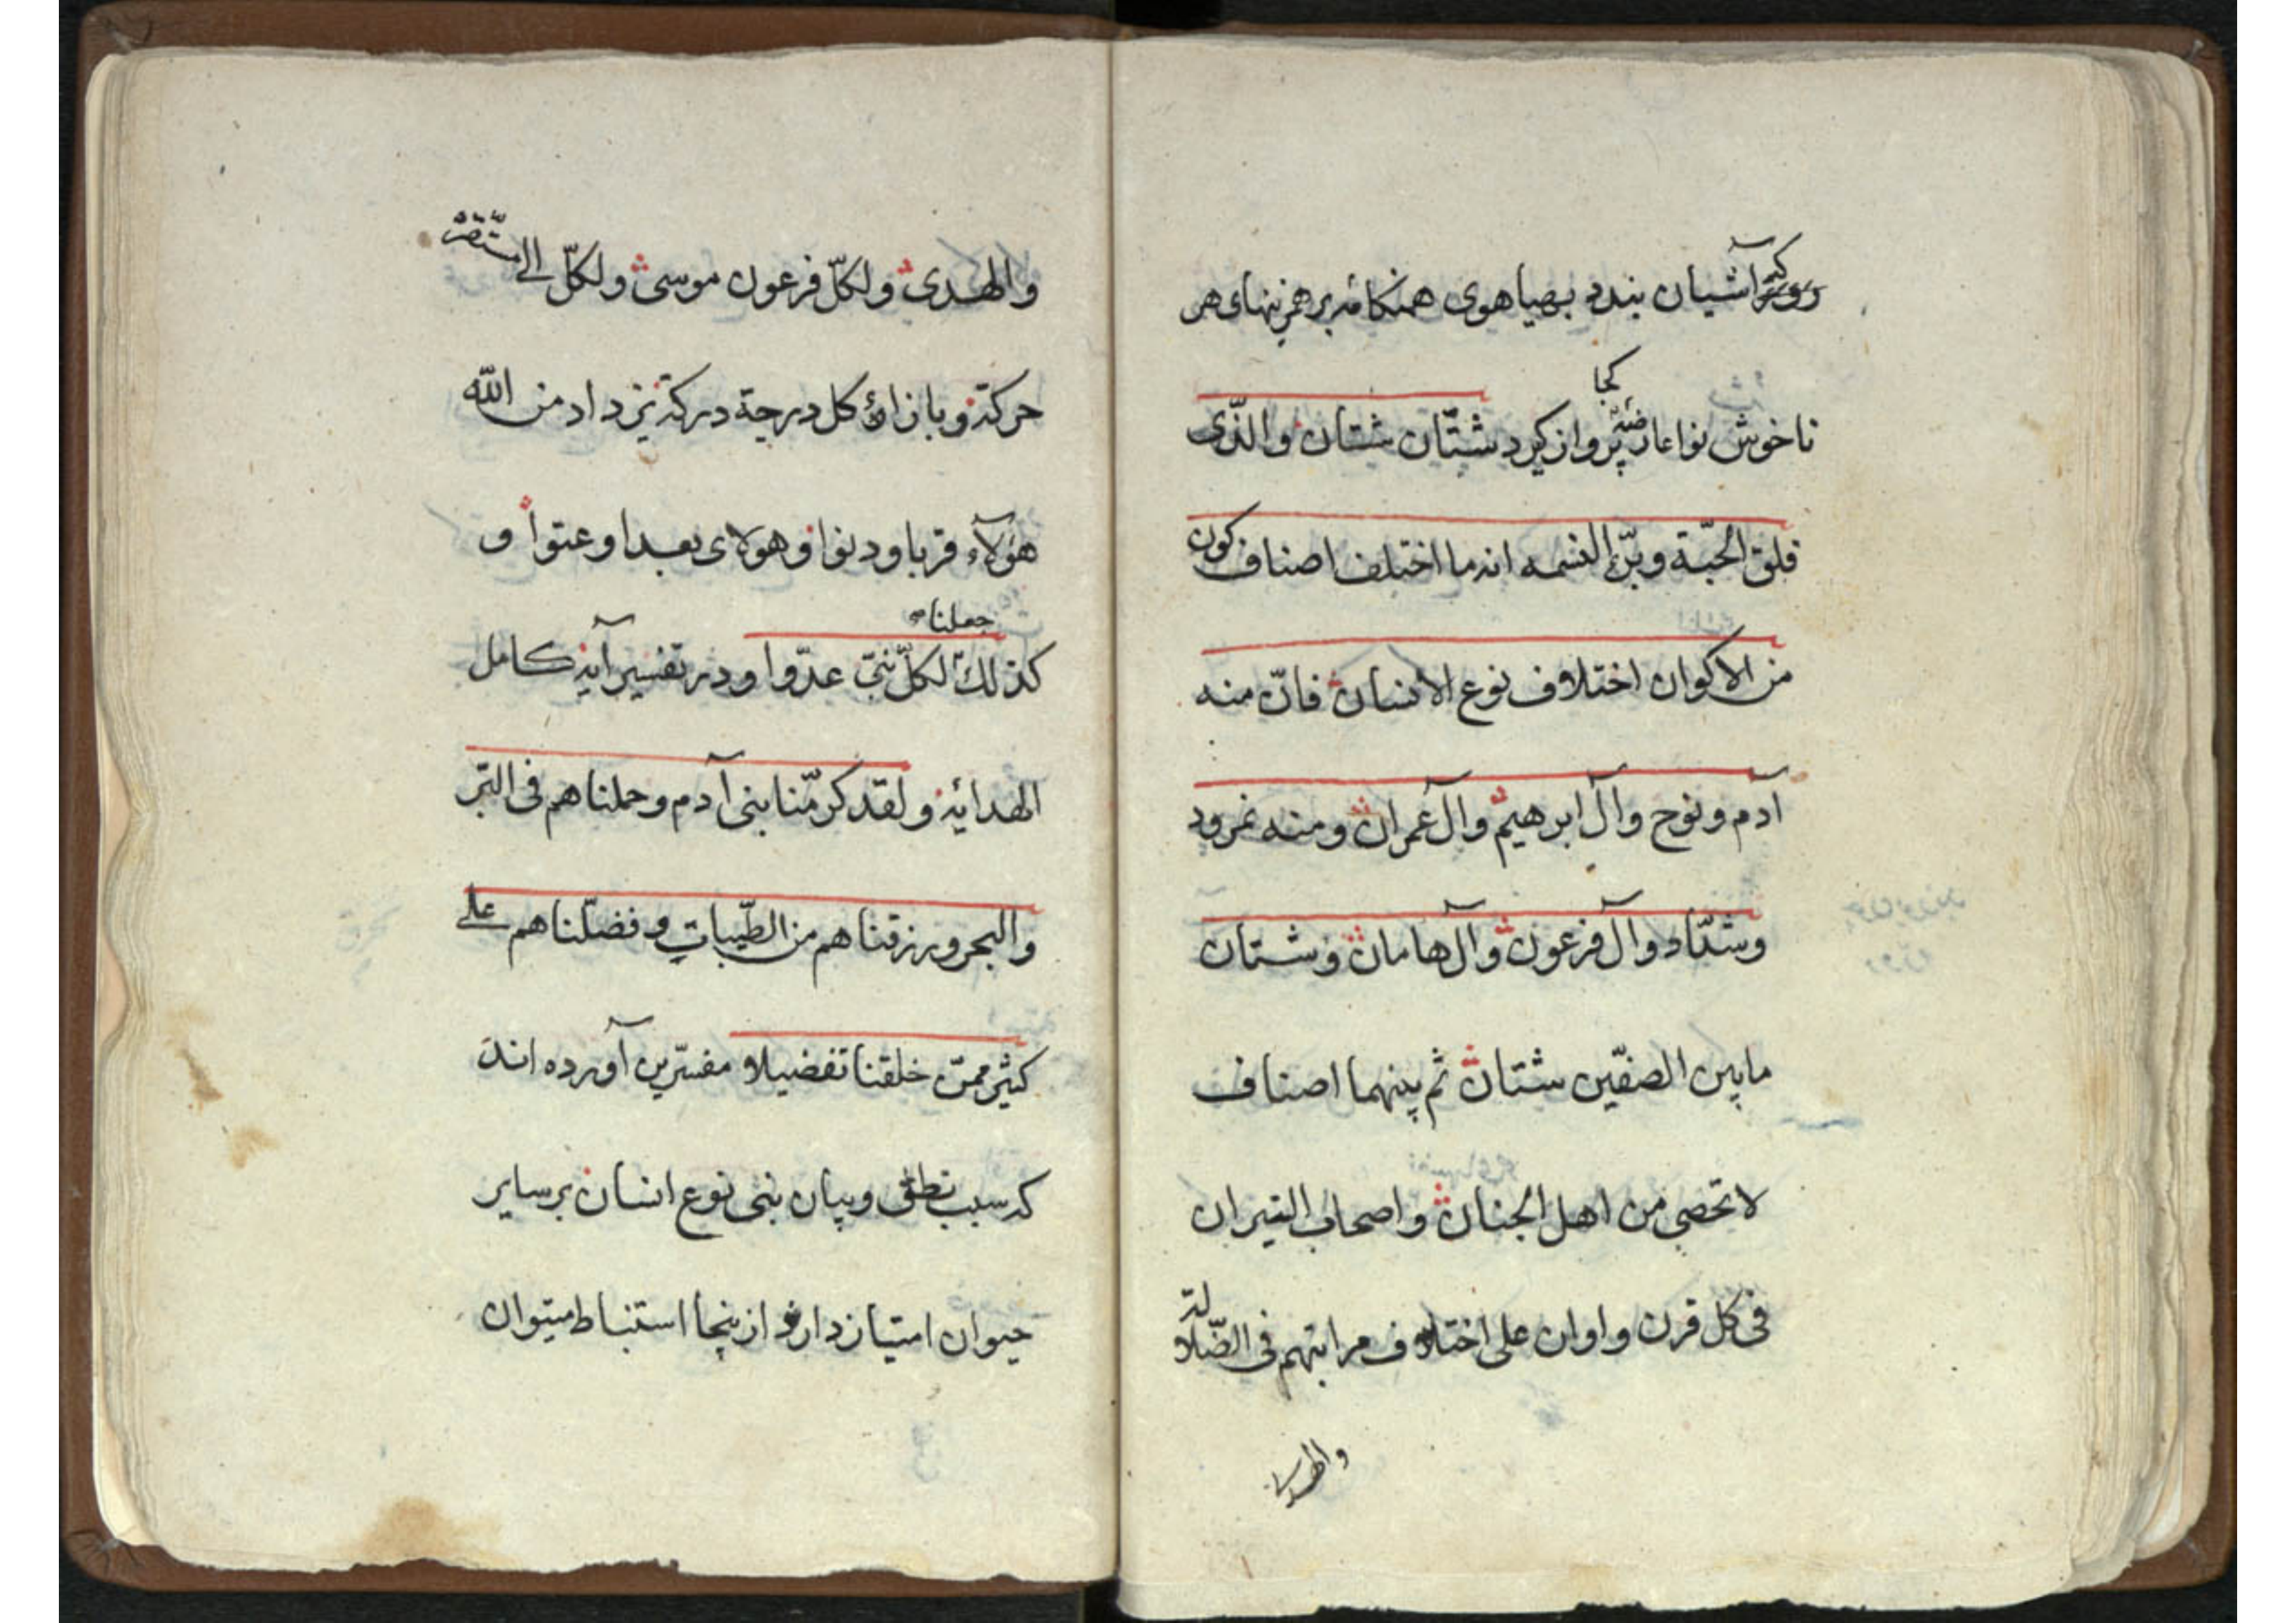 آشیان بندد بهیاهوی هنکامه بر همزنیهای هر
کجا
ناخوش نوا پرواز کیرد شتّان شتان والذّی
فلق الحبّة وبرء النسمه انه ما اختلف اصناف کون
من الاکوان اختلاف نوع الانسان فانّ منه
آدم ونوح وآل ابرهیم وآل عمران ومنه نمرود
وشدّاد وآل فرعون وآل هامان وشتان
مابین الصفّین شتان ثم بینهما اصناف
لا تحصی من اهل الجنان واصحاب النیران
فی کل قرن واوان علی اختلاف مراتبهم فی الضّلالة
والهدی
والهدی ولکلّ فرعون موسی ولکلّ الی مستقرّه
حرکة وبازاء کل درجة درکة یزداد من الله
هؤلآء قربا ودنوا وهولای بعدا وعتوا و
جعلنا
کذلک لکلّ نبیّ عدّوا ودر تفسیر آیه کامل
الهدایه ولقد کرّمنا بنی آدم وحملناهم فی البّر
والبحر ورزقناهم من الطّیبات وفضّلناهم علی
کثیر ممّن خلقنا تفضیلا مفسّرین آورده اند
که سبب نطق وبیان بنی نوع انسان بر سایر
حیوان امتیاز دارد از ینجا استنباط میتوان